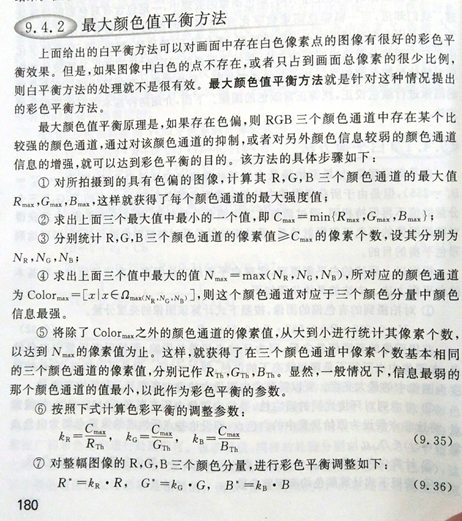 9.4.2 最大颜色值平衡方法
上面给出的白平衡方法可以对画面中存在白色像素点的图像有很好的彩色平
衡效果。但是,如果图像中白色的点不存在,或者只占到画面总像素的很少比例,
则白平衡方法的处理就不是很有效。最大颜色值平衡方法就是针对这种情况提出
的彩色平衡方法。
最大颜色值平衡原理是,如果存在色偏,则 RGB 三个颜色通道中存在某个比
较强的颜色通道,通过对该颜色通道的抑制,或者对另外颜色信息较弱的颜色通道
信息的增强,就可以达到彩色平衡的目的。该方法的具体步骤如下:
① 对所拍摄到的具有色偏的图像,计算其 R,G,B 三个颜色通道的最大值
Rmax,Gmax,Bmax,这样就获得了每个颜色通道的最大强度值;
② 求出上面三个最大值中最小的一个值,即 Cmax=min{Rmax,Gmax,Bmax};
③ 分别统计 R,G,B 三个颜色通道的像素值≥Cmax的像素个数,设其分别为
NR,NG,NB;
④ 求出上面三个值中最大的值 Nmax=max(NR,NG,NB),所对应的颜色通道
为 Colormax=[x|x∈Ωmax(NR,NG,NB)],则这个颜色通道对应于三个颜色分量中颜色
信息最强。
⑤ 将除了 Colormax之外的颜色通道的像素值,从大到小进行统计其像素个数,
以达到 Nmax的像素值为止。这样,就获得了在三个颜色通道中像素个数基本相同
的三个颜色通道的像素值,分别记作 RTh,GTh,BTh。显然,一般情况下,信息最弱的
那个颜色通道的值最小,以此作为彩色平衡的参数。
⑥ 按照下式计算色彩平衡的调整参数:
kR=Cmax/RTh, kG=Cmax/GTh, kB=Cmax/BTh (9.35)
⑦ 对整幅图像的 R,G,B 三个颜色分量,进行彩色平衡调整如下:
R*=kR·R, G*=kG·G, B*=kB·B (9.36)
180